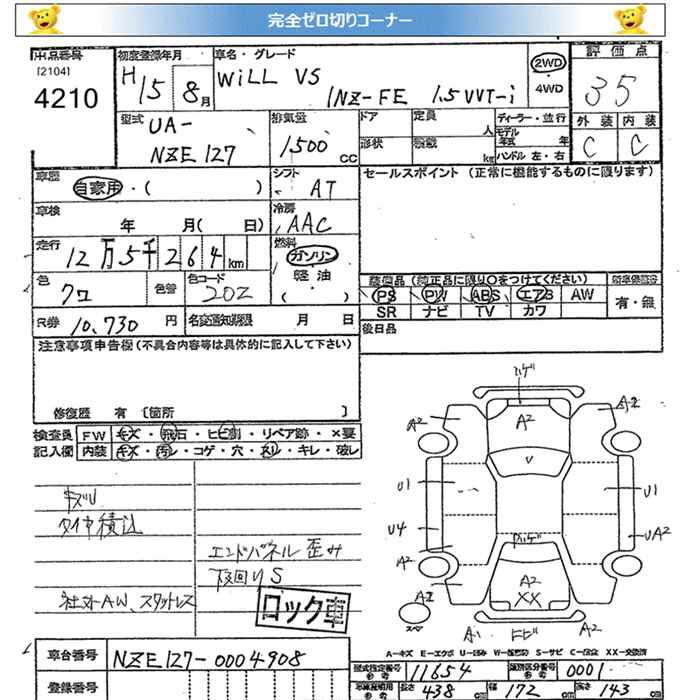 完全ゼロ切りコーナー
出品番号 初度登録年月 車名・グレード 評価点
[2104] H15 8月 WiLL VS 2WD ・ 4WD 35
4210 1NZ-FE 1.5VVT-i
型式 排気量 ドア 定員 人 ディーラー・並行 外装 内装
UA- NZE127 1,500 CC 形状 積載 kg モデル年式 年 C C
ハンドル 左・右
車歴 シフト セールスポイント (正常に機能するものに限ります)
自家用・( ) AT
車検 冷房
年 月( 日) AAC
走行 燃料
12万5千264km ガソリン・軽油
色 色替 色コード ( ) 装備品 (純正品に限り○をつけてください)
クロ 202 PS PW ABS エアB AW 有・無
SR ナビ TV カワ
R券 10,730円 名変通知期限 月 日 後日品
注意事項申告欄(不具合内容等は具体的に記入して下さい)
修復歴 有 [箇所 ]
検査員 FW キズ・飛石・ヒビ割・リペア跡・×要
記入欄 内装 キズ・汚レ・コゲ・穴・スレ・キレ・破レ
キズU
タイヤ積込
エンドパネル 歪み
下回りS
社外AW、スタッドレス
ロック車
ハゲ
A2 A2 A2
V
U1 U1
U4 UA2
ハゲ
A2 A2
A2
XX
A2
A1 ヒビ A2
スペア
A−キズ E−エクボ U−凹み W−補修跡 S−サビ C−腐食 XX−交換済
車台番号 NZE127-0004908 型式指定番号 11654 類別区分番号 0001
登録番号 長さ 438 cm 幅 172 cm 高さ 143 cm